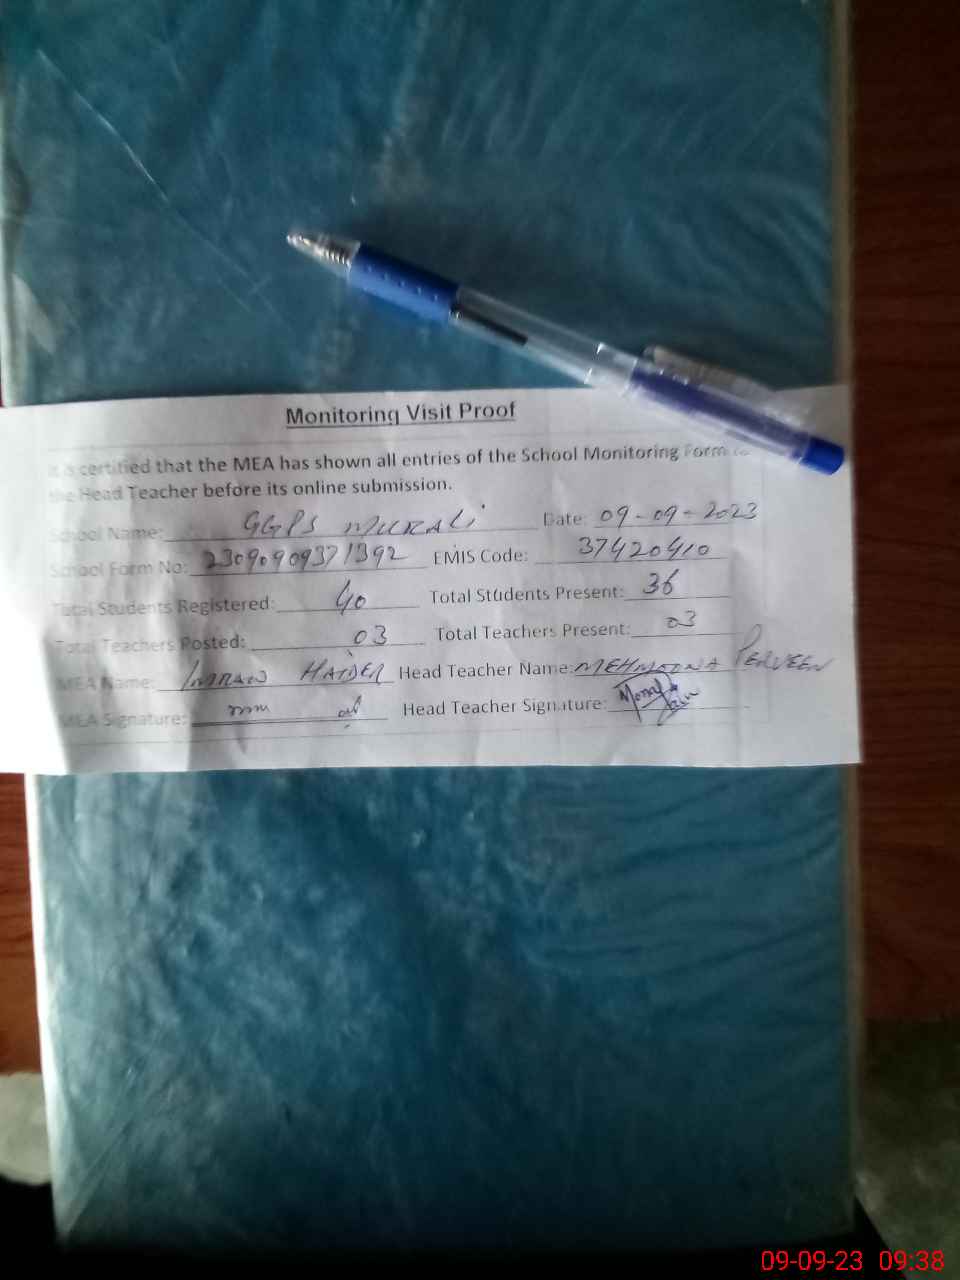 Monitoring Visit Proof
It is certified that the MEA has shown all entries of the School Monitoring Form to
the Head Teacher before its online submission.
School Name: GGPS MURALI Date: 09-09-2023
School Form No: 23090909371392 EMIS Code: 37420410
Total Students Registered: 40 Total Students Present: 36
Total Teachers Posted: 03 Total Teachers Present: 03
MEA Name: IMRAN HAIDER Head Teacher Name: MEHMOONA PERVEEN
MEA Signature: Head Teacher Signature:
09-09-23 09:38